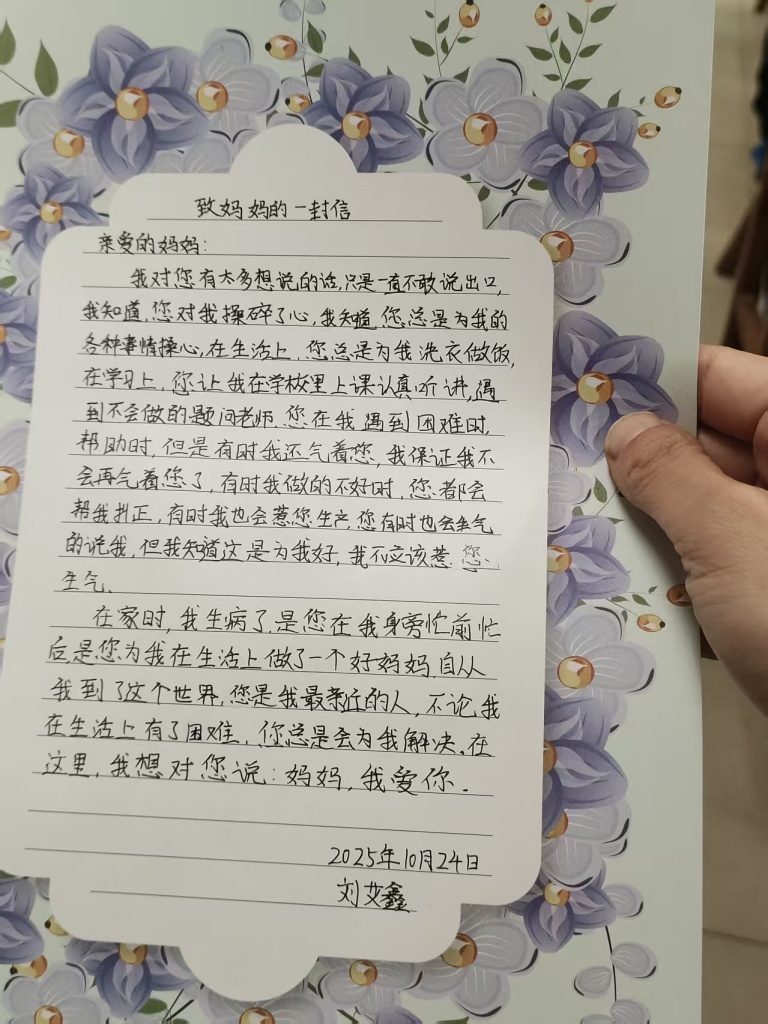 致妈妈的一封信
亲爱的妈妈：
我对您有太多想说的话,只是一直不敢说出口,
我知道,您对我操碎了心,我知道,您总是为我的
各种事情操心,在生活上,您总是为我洗衣做饭,
在学习上,您让我在学校里上课认真听讲,遇
到不会做的题问老师,您在我遇到困难时,
帮助时,但是有时我还气着您,我保证我不
会再气着您了,有时我做的不好时,您都会
帮我纠正,有时我也会惹您生产,您有时也会生气
的说我,但我知道这是为我好,我不应该惹您
生气.
在家时,我生病了,是您在我身旁忙前忙
后是您为我在生活上做了一个好妈妈,自从
我到了这个世界,您是我最亲近的人,不论我
在生活上有了困难,你总是会为我解决.在
这里,我想对您说:妈妈,我爱你.
2025年10月24日
刘艾鑫